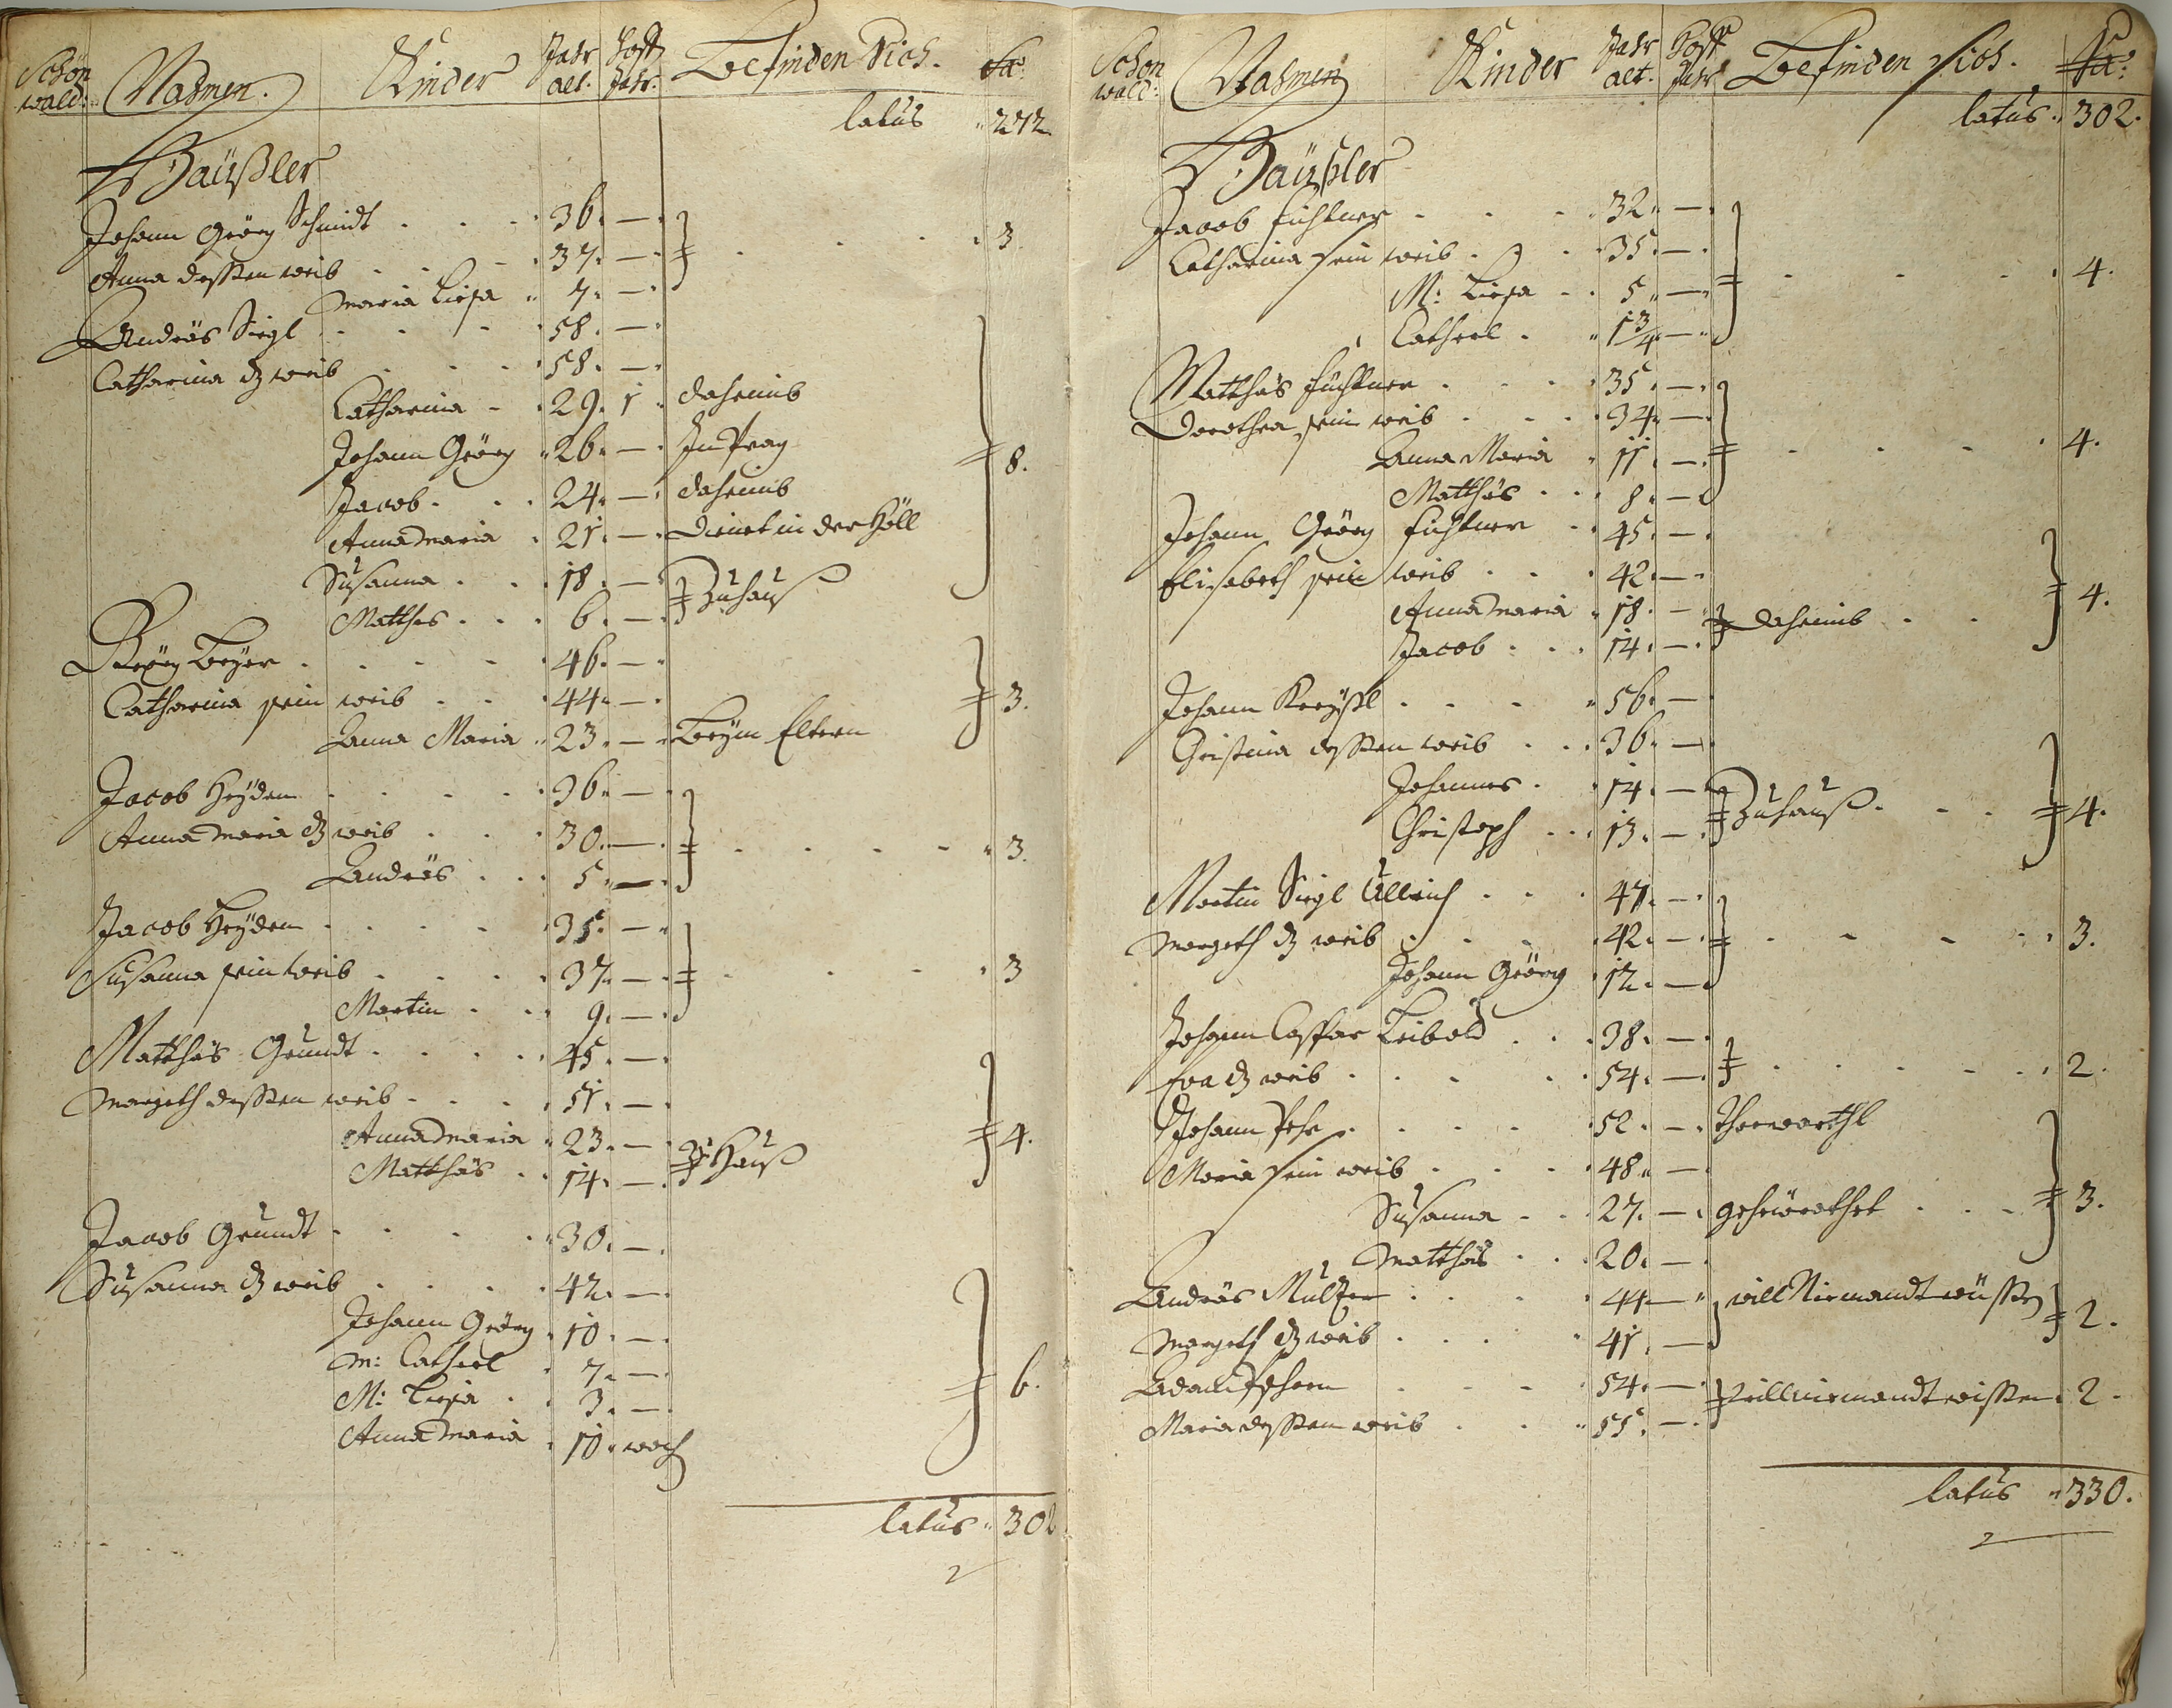 Schön
wald: Nahmen. Kinder Jahr alt. Hoff Jahr. Befinden Sich. Sa:
latus 272
Häußler
Johann Geörg Schmidt 36. —
Anna dessen weib 37. — 3.
Maria Liesa 7. —
Andreas Siegl 58. —
Catharina dß weib 58. —
Catharina 29. 1 daheimb
Johann Geörg 26. — In Prag
Jacob 24. — daheimb 8.
Anna Maria 21. — Dienet in der Höll
Susanna 18. — Zuhauß
Matthes 6. —
Geörg Beyer 46. —
Catharina sein weib 44. — 3.
Anna Maria 23. — Beym Eltern
Jacob Heyden 36. —
Anna Maria dß weib 30. — 3.
Andreas 5. —
Jacob Heyden 35. —
Susanna sein weib 37. — 3
Martin 9. —
Matthäs Grundt 45. —
Margeth dessen weib 51. —
Anna Maria 23. — Zu Hauß 4.
Matthäs 14. —
Jacob Grundt 30. —
Susanna dß weib 42. —
Johann Geörg 10. —
M: Catherl 7. —
M: Liesa 3. — 6.
Anna Maria 10. woch
latus 302
Schön
wald: Nahmen Kinder Jahr alt. Hoff Jahr Befinden sich. Sa:
latus 302.
Häußler
Jacob Fichtner 32. —
Catharina sein weib 35. —
M: Liesa 5. — 4.
Catherl 1 3/4 —
Matthäs Fichtner 35. —
Dorothea sein weib 34. —
Anna Maria 11. — 4.
Matthäs 8. —
Johann Geörg Fichtner 45. —
Elisabeth sein weib 42. —
Anna Maria 18. — daheimb 4.
Jacob 14. —
Johann Kreyßl 56. —
Christina dessen weib 36. —
Johannes 14. — Zuhauß 4.
Christoph 13. —
Martin Siegl Ullrich 47. —
Margeth dß weib 42. — 3.
Johann Geörg 12. —
Johann Caspar Leibold 38. —
Eva dß weib 54. — 2.
Johann 52. — Thorwarthl
Maria sein weib 48. —
Susanna 27. — geheürathet 3.
Matthäs 20. —
Andreas Mültzer 44 — will Niemandt wüssen 2.
Margeth dß weib 41. —
Adam 54. — will niemandt wissen 2.
Maria dessen weib 55. —
latus 330.